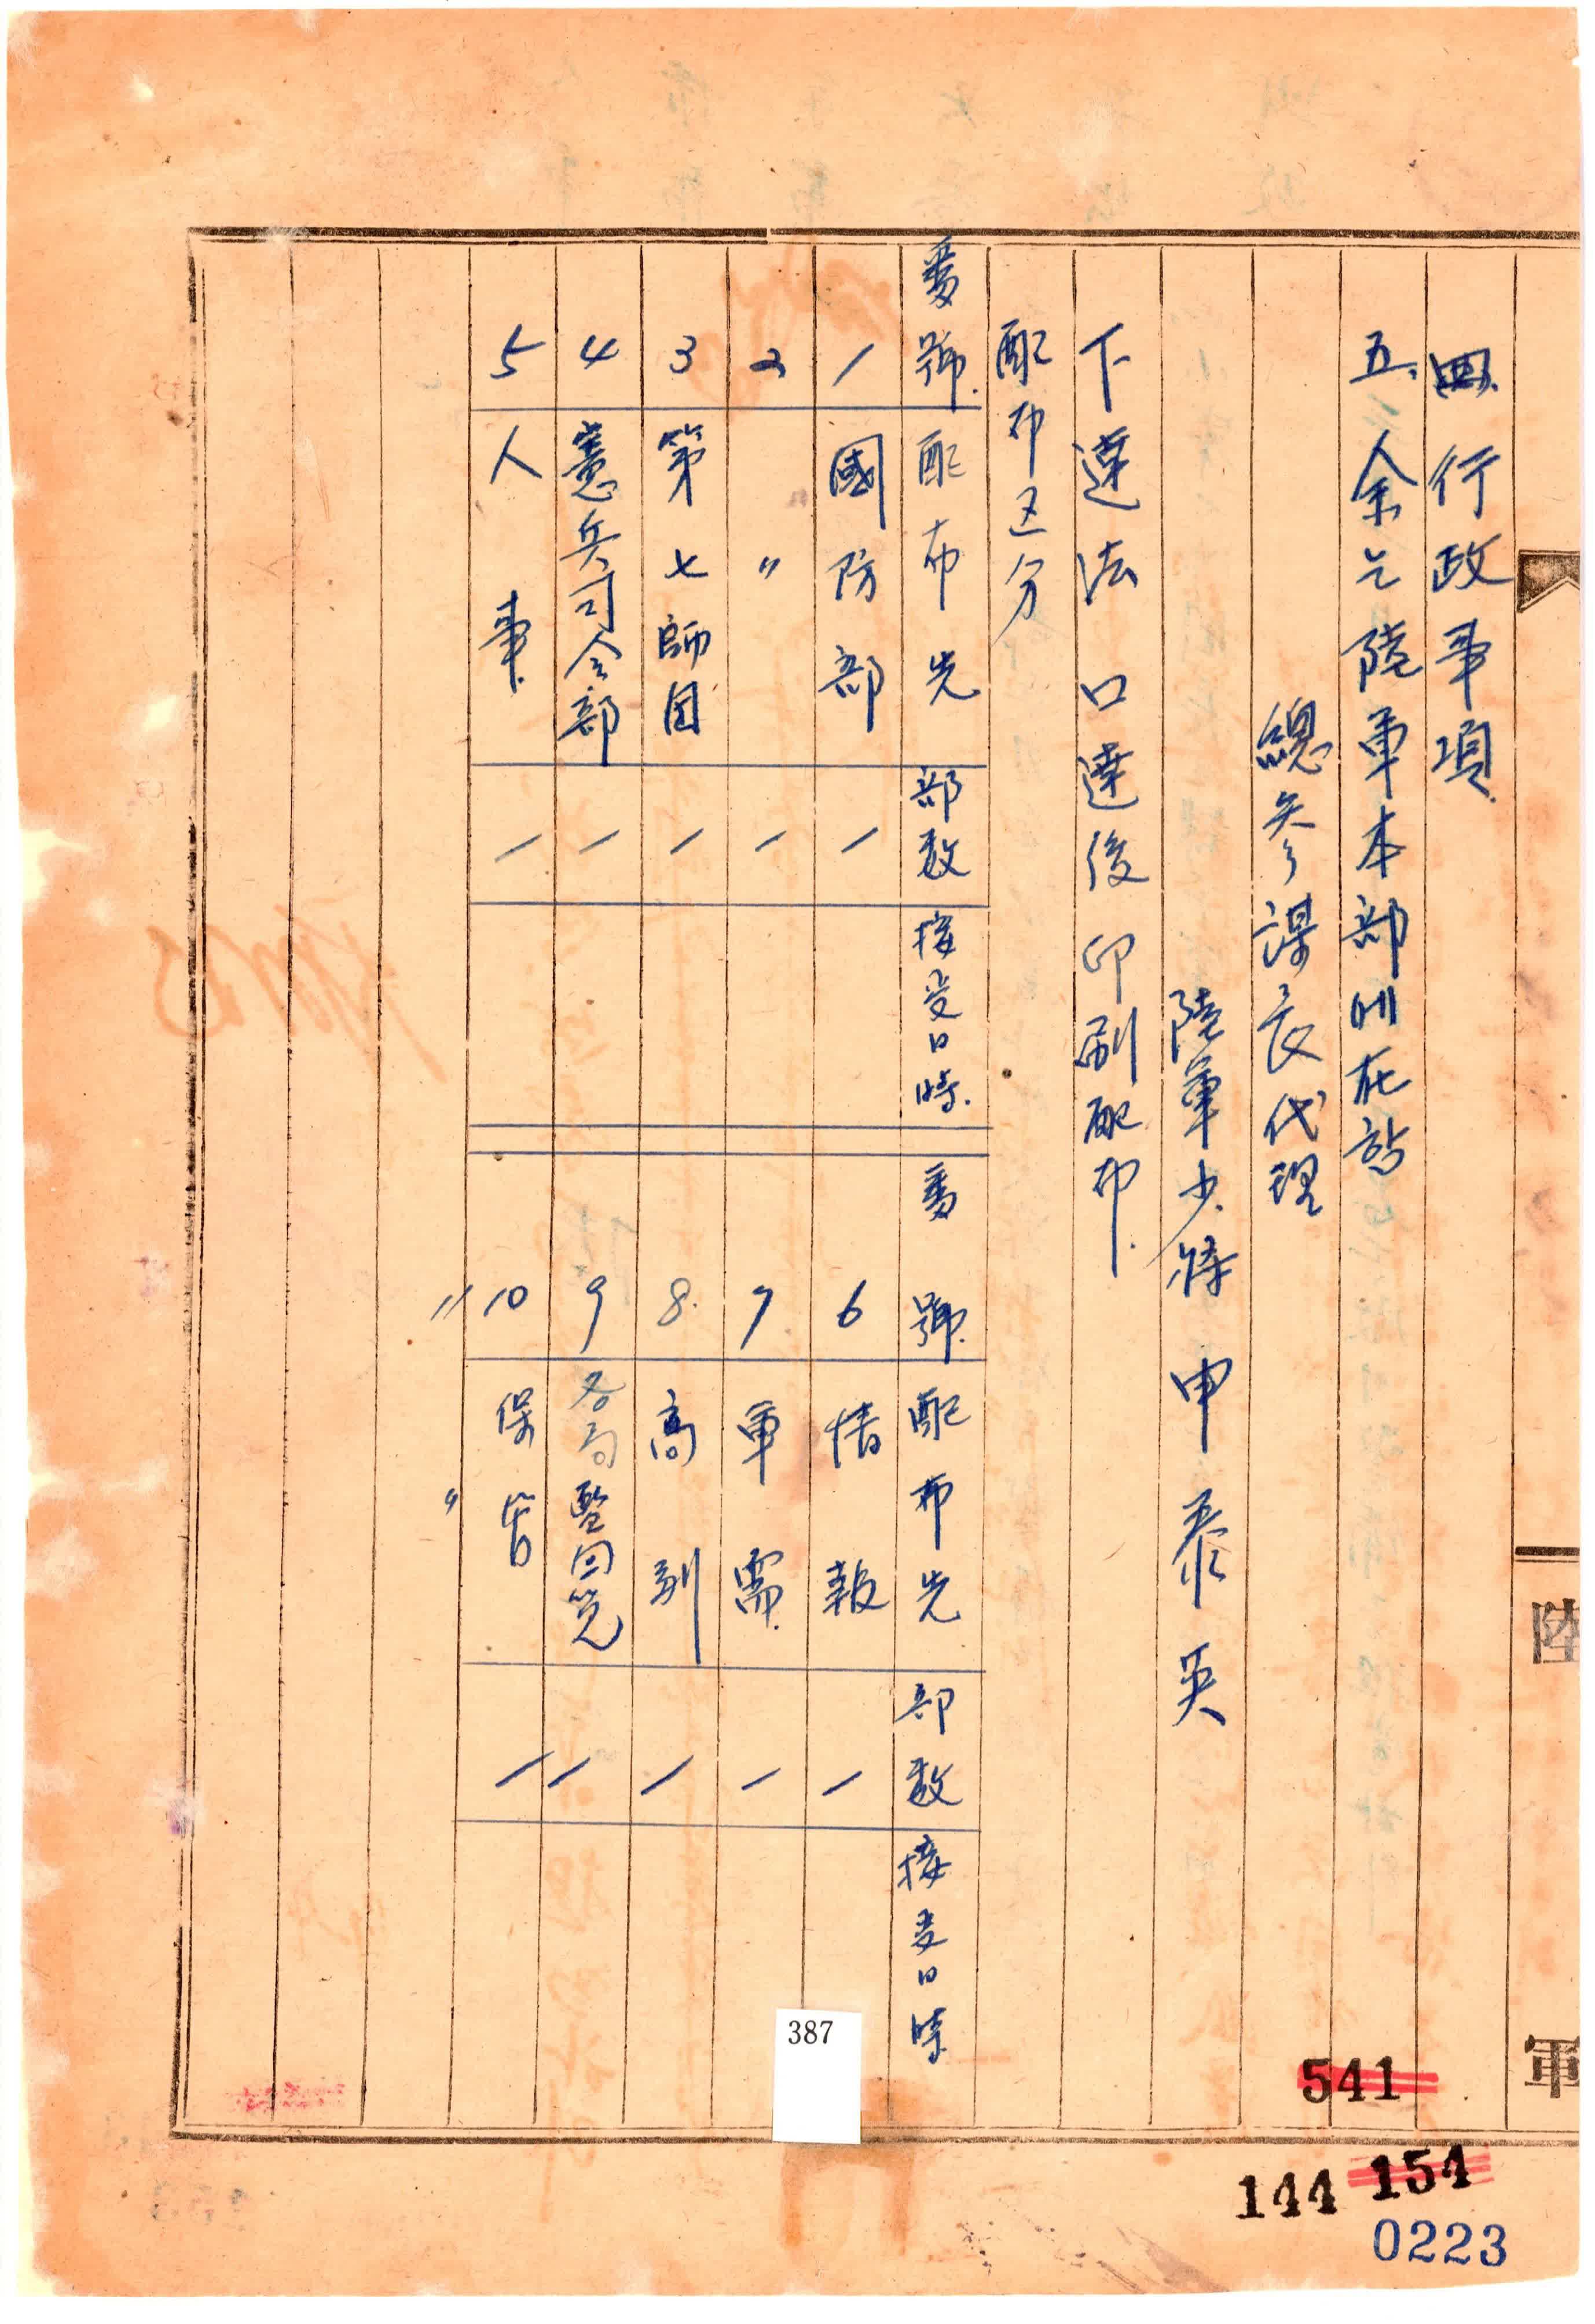 四. 行政事項.
五. 余는 陸軍本部에 在함
總參謀長代理
陸軍少將 申泰英
下達法 口達後 印刷配布.
配布区分
番號. 配布先 部数 接受日時.
1 國防部 1
2 〃 1
3 第七師団 1
4 憲兵司令部 1
5 人事. 1
番號. 配布先 部数 接受日時
6 情報 1
7 軍需. 1
8. 高副 1
9 各局 回覽 1
10 保管 1
〃 〃
陸
軍
387
541
144 154
0223